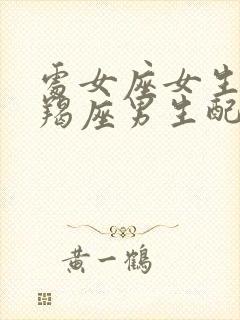 處女座女生
羯座男生配
黃一鶴